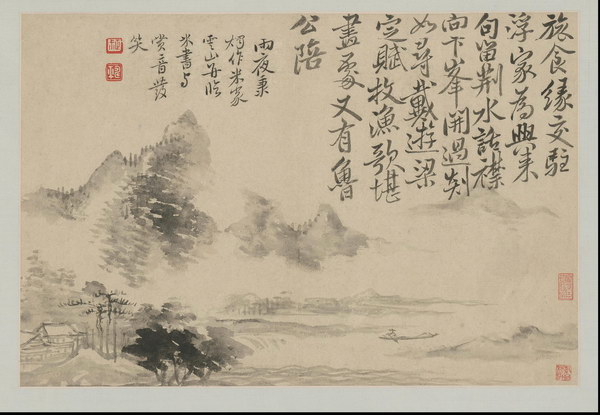 旅食緣交駐
浮家為興来
句留荆水話襟
向卞峯開過剡
如尋戴遊梁
定賦枚漁歌堪
畫處又有魯
公陪
雨夜秉
燭作米家
雲山并臨
米書与
賞音發
笑